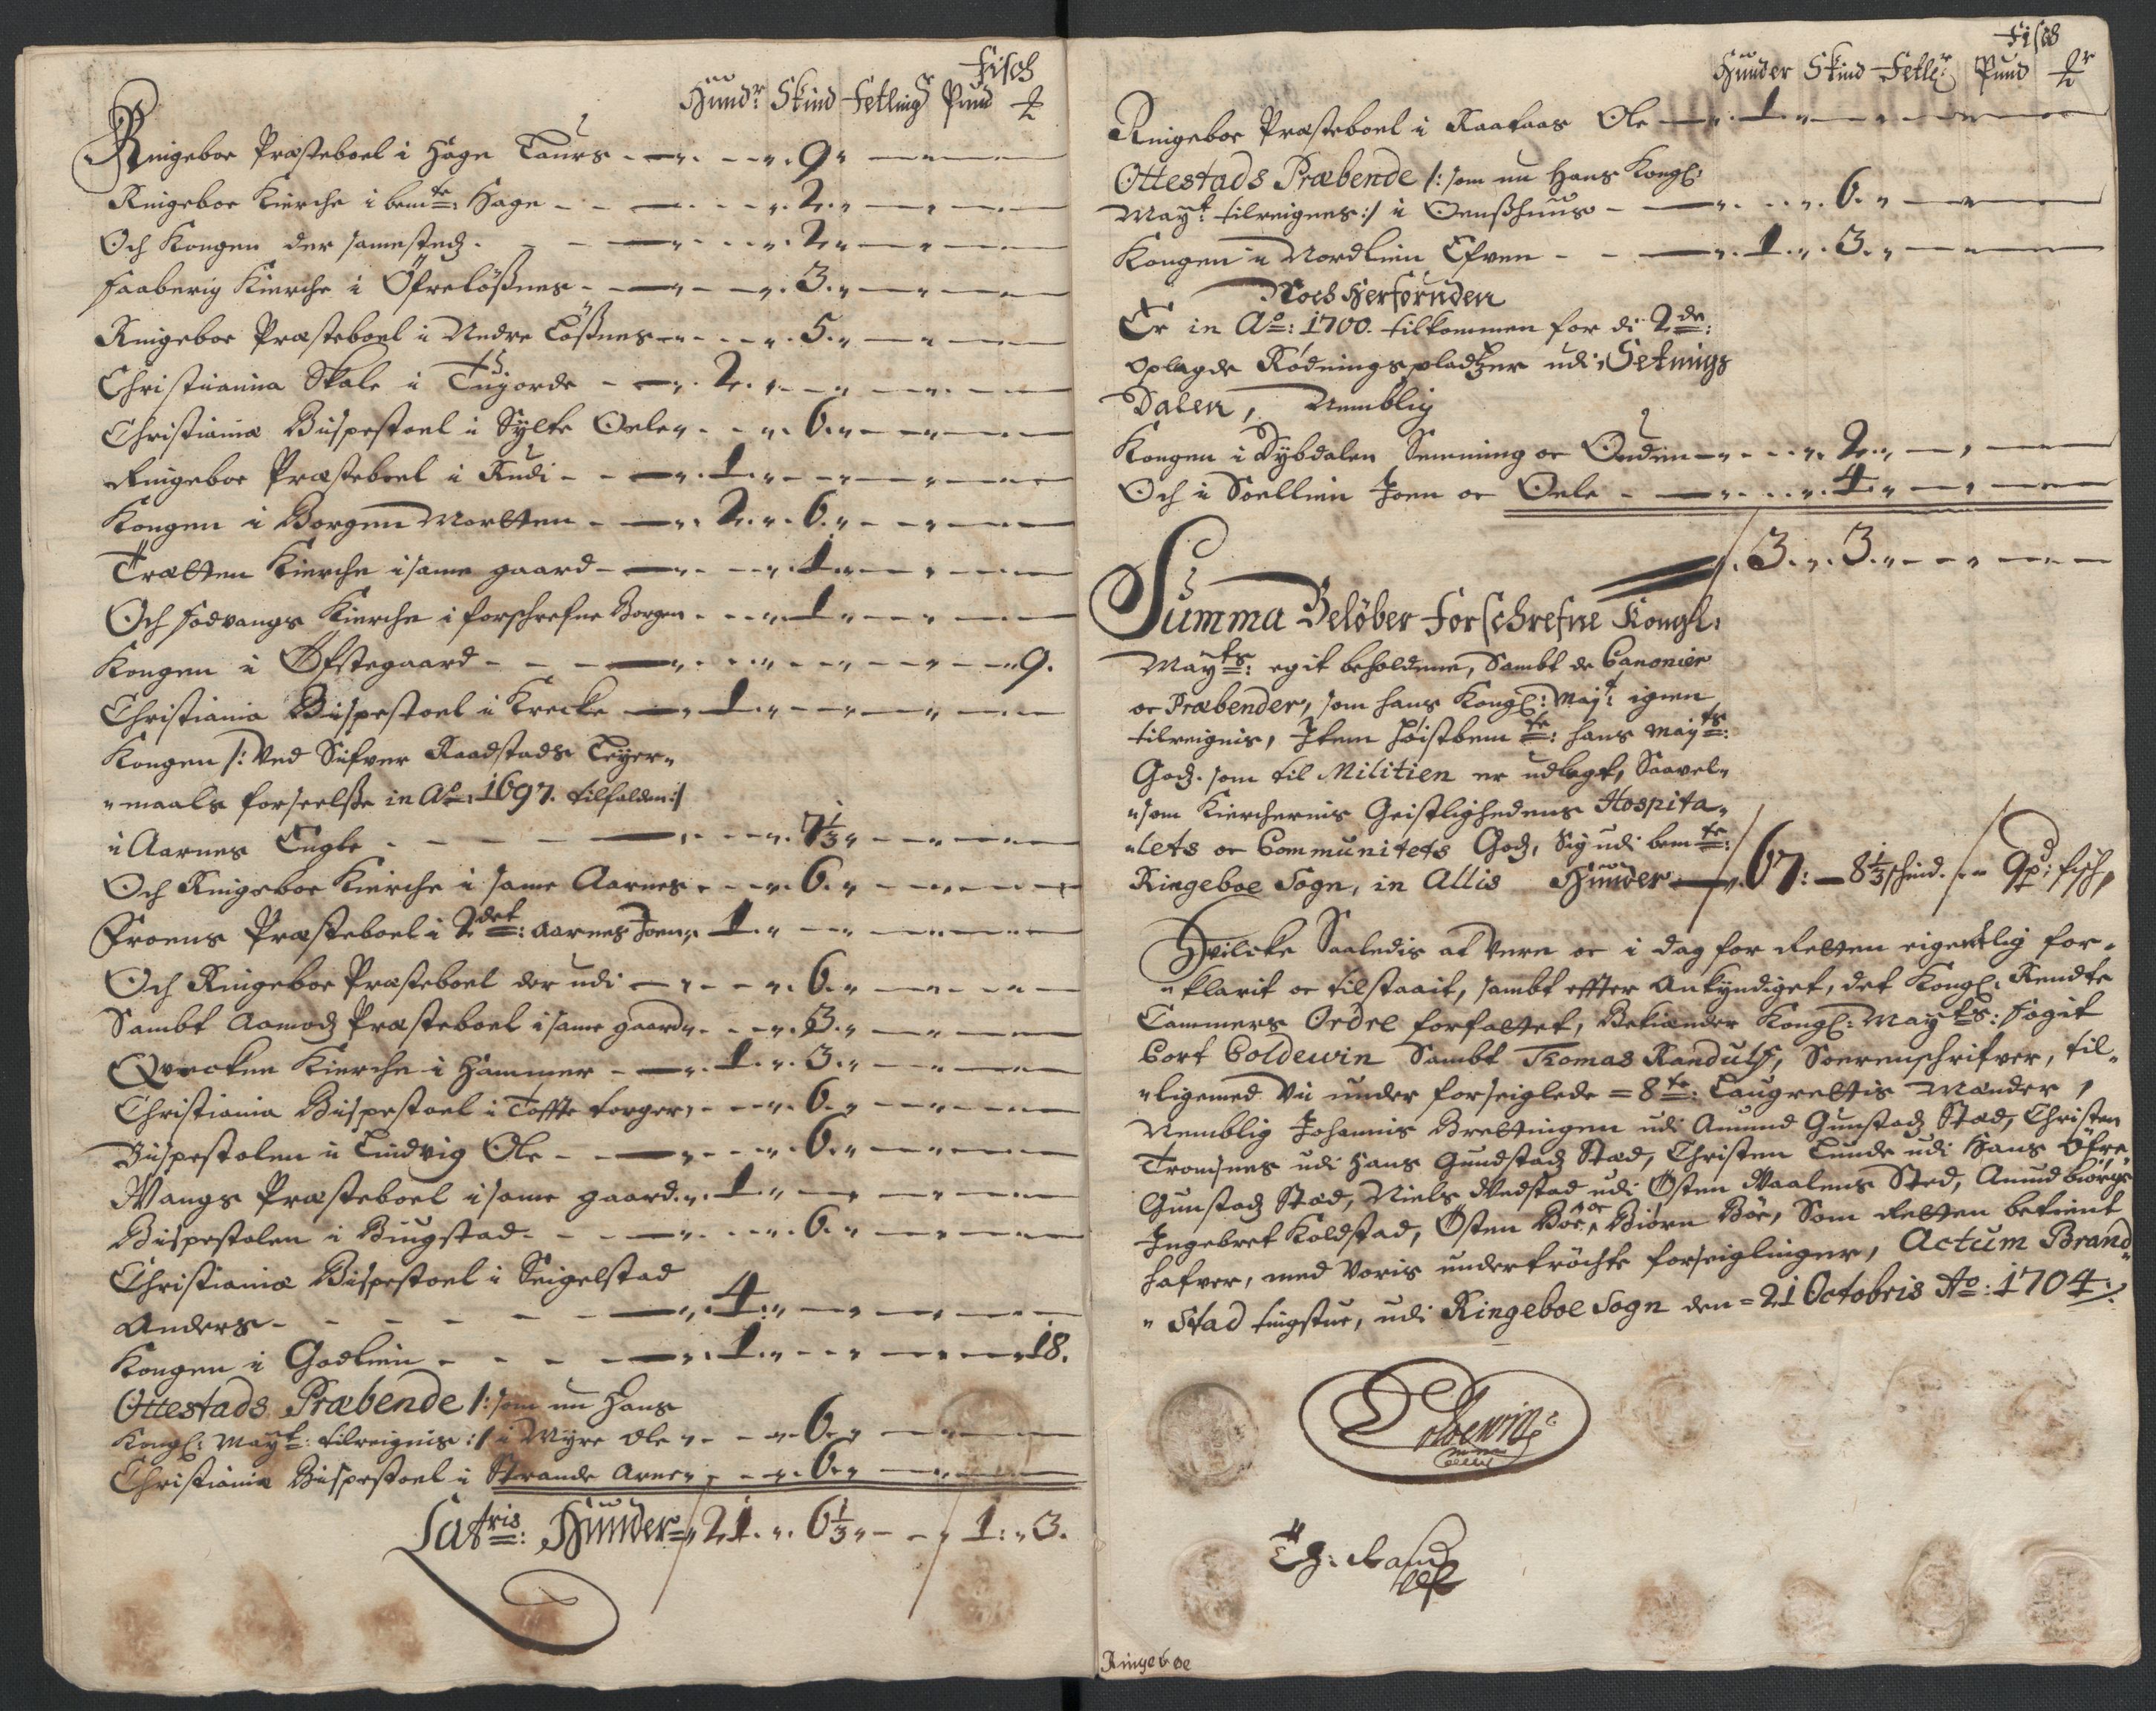 Fisch
Hundr: Skind Setlingr Pund
Ringeboe Præsteboel i Hage Taurs - 9
Ringeboe Kierche i bemte: Hage - 2
Och Kongen der samestedz - 2
Faaberig Kierche i Öfreløssnes - 3
Ringeboe Præsteboel i Nedre Lössnes - 5
Christiania Skole i - 2
Christiania Bispestoel i Sylte Oele - 6
Ringeboe Præsteboel i Rudi - 1
Kongen i Borgen Mortten - 2 - 6
Trætten Kierche i same gaard - 1
Och Fodvangs Kierche i forschrefne Borgen - 1
Kongen i Öfstegaard - 9.
Christiania Bispestoel i Krecke - 1
Kongen /: Ved Sifver Raadstads Leyer„
„maals forseelsse in Ao: 1697. tilfalden :/
i Aarnes Engle - 7 1/3
Och Ringeboe Kierche i same Aarnes - 6
Froens Præsteboel i 2det: Aarnes Joen - 1
Och Ringeboe Præsteboel der udi - 6
Sambt Aamodz Præsteboel i same gaard - 3
Qvecken Kierche i Hammer - 1 - 3
Christiania Bispestoel i Toffte torger - 6
Bispestolen i Lindvig Ole - 6
Wangs Præsteboel i same gaard - 1
Bispestolen i Biugstad - 6
Christiania Bispestoel i Seigelstad
Anders - 4
Kongen i Godlien - 1 - 18.
Ottestads Præbende /: som nu Hans
Kongl: Mayt: tilreignis :/ i Myre Ole - 6
Christiania Bispestoel i Strande Arne - 6
Latris: Hunder 21. 6 1/3 - 1: 3.
Fisch
Hunder Skind Setlr: Pund
Ringeboe Præsteboel i Kaasaas Ole - 1
Ottestads Præbende /: som nu Hans Kongl:
Mayt: tilreignes :/ i Oensshuus - 6
Kongen i Nordlien Efven - 1 - 3
Noch Herforuden
Er in Ao: 1700. tilkommen for di 2de:
Oplagde Rødningspladzer udi Setnings
Dalen, Nemblig
Kongen i Dybdalen Semming oc Enden - 2
Och i Soellien Joen oc Oele - 4
3 - 3
Summa Beløber Forschrefne Kongl:
Mayts: egit beholdene, Sambt de Canonier
oc Præbender, som hans Kongl: Mayt: igien
tilreignis, Item høistbemte: hans Mayts:
Godz. som til Militien er udlagt, Saavel„
„som Kierchernis Geistlighedens Hospita„
„lets oc Communitets Godz, Sig udi bemte:
Ringeboe Sogn, in Allis Hunder 67: - 8 1/3 schind. - 9 pd: fisch,
Hvilcke Saaledis at Vere oc i dag for Retten eigentlig for„
„klarit oc tilstaait, sambt effter Ankyndiget, det Kongl: Rendte
Cammers Ordre forfattet, Bekiender Kongl: Mayts: Fogit
Cort Coldewin Sambt Thomas Randulf, Sorenschrifver, til„
„ligemed Vii under forseiglede = 8te: Laugrettis Mænder,
Nemblig Johannis Brettingen udi Amund Gunstadz Stæd, Christen
Tromsnes udi Hans Gundstadz Stæd, Christen Lunde udi Hans Öfre„
Gunstadz Stæd, Niels Wedstad udi Östen Waalens Sted, Amund biörge
Ingebret Koldstad, Östen Böe, oc Biørn Böe, Som Retten betient
hafver, med Voris undertröchte forseiglinger, Actum Brand„
„stad tingstue, udi Ringeboe Sogn den = 21 Octobris Ao: 1704.
Coldewin
Th: Randulf
Ringeboe